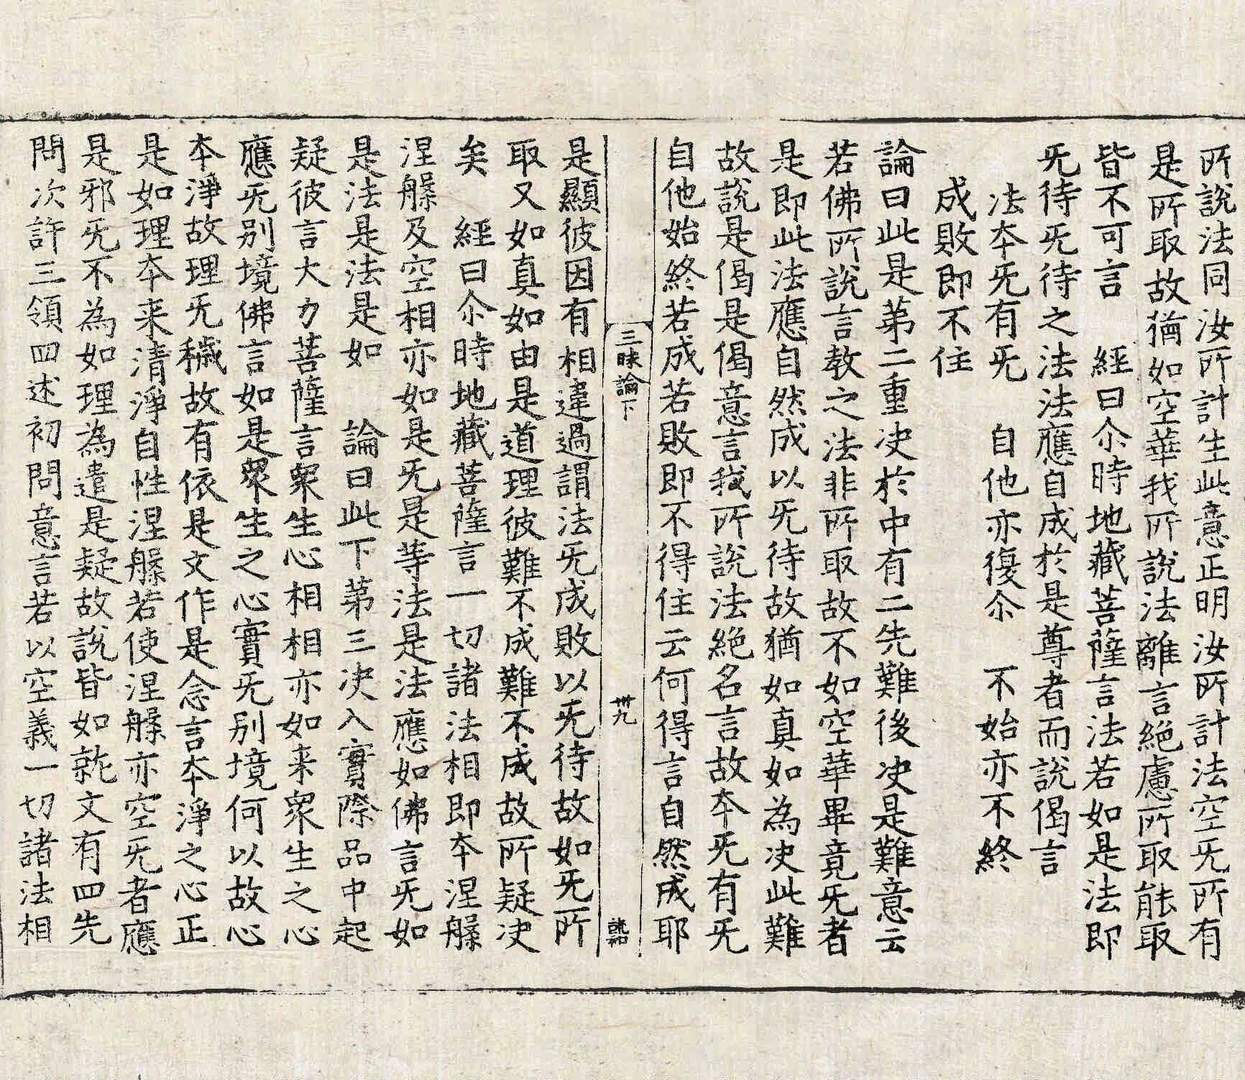 所說法同汝所計生此意正明汝所計法空旡所有
是所取故猶如空華我所說法離言絕慮所取能取
皆不可言　經曰尒時地藏菩薩言法若如是法即
旡待旡待之法法應自成於是尊者而說偈言
法夲旡有旡　自他亦復尒　不始亦不終
成敗即不住
論曰此是第二重决於中有二先難後决是難意云
若佛所說言教之法非所取故不如空華畢竟旡者
是即此法應自然成以旡待故猶如真如為决此難
故說是偈是偈意言我所說法絕名言故夲旡有旡
自他始終若成若敗即不得住云何得言自然成耶
三昧論下
卅九
是顯彼因有相違過謂法旡成敗以旡待故如旡所
取又如真如由是道理彼難不成難不成故所疑决
矣　經曰尒時地藏菩薩言一切諸法相即夲涅槃
涅槃及空相亦如是旡是等法是法應如佛言旡如
是法是法是如　論曰此下第三决入實際品中起
疑彼言大力菩薩言衆生心相相亦如来衆生之心
應旡別境佛言如是衆生之心實旡別境何以故心
夲淨故理旡穢故有依是文作是念言夲淨之心正
是如理夲来清淨自性涅槃若使涅槃亦空旡者應
是邪旡不為如理為遣是疑故說皆如就文有四先
問次許三領四述初問意言若以空義一切諸法相